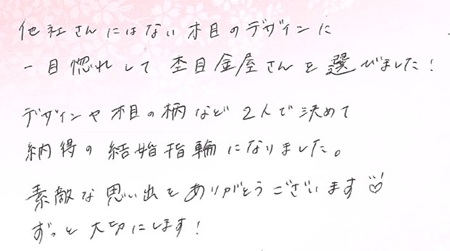 他社さんにはない木目のデザインに
一目惚れして杢目金屋さんを選びました!
デザインや木目の柄など2人で決めて
納得の結婚指輪になりました。
素敵な思い出をありがとうございます♡
ずっと大切にします!